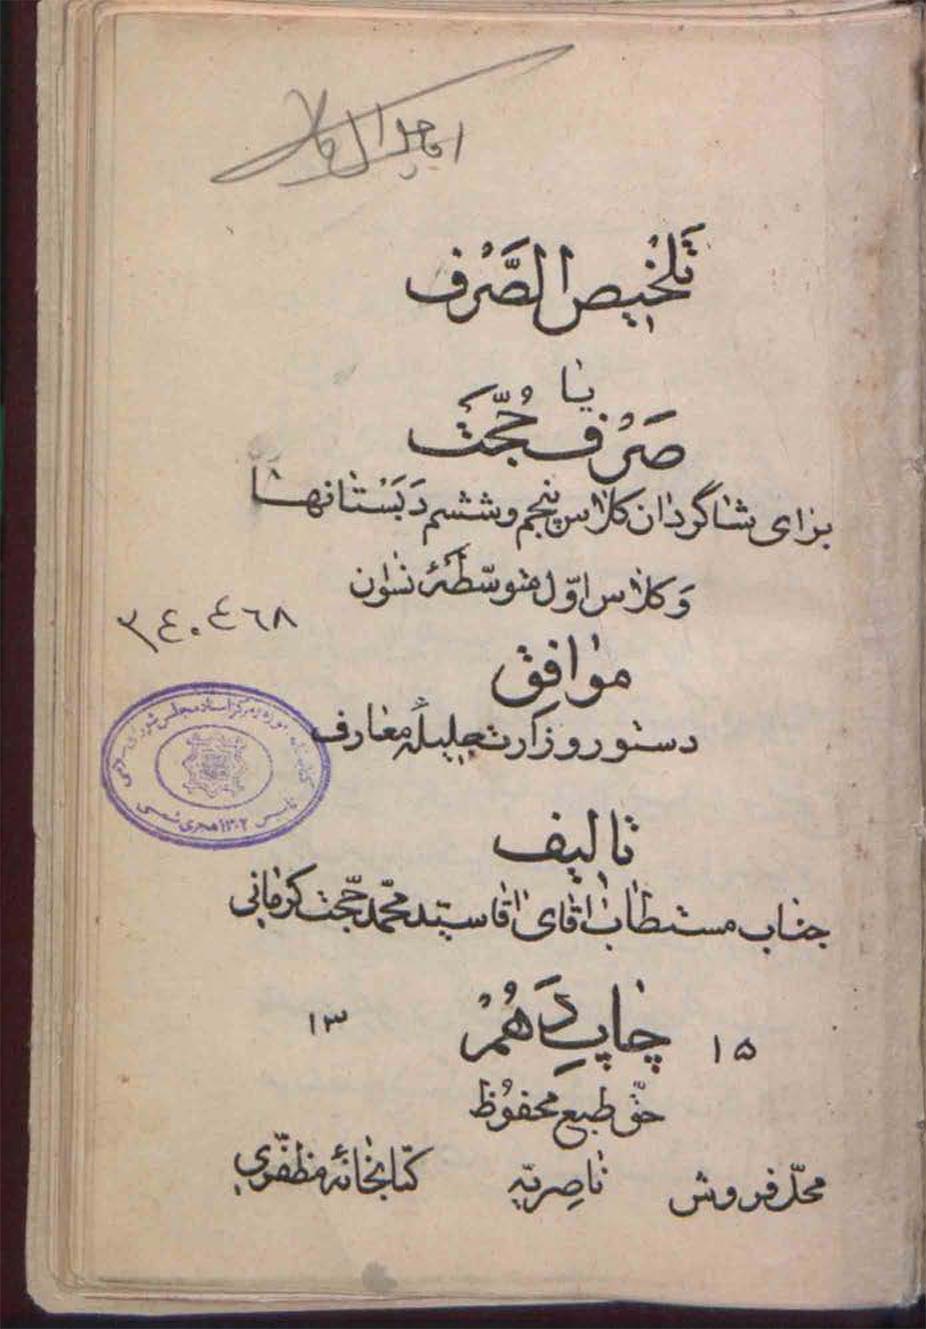 تلخیص الصَّرْف
یا
صَرْف حُجَّتْ
برای شاگردان کلاس پنجم و ششم دَبَسْتانها
وَ کلاس اوّل متوسّطَهٔ نسوان
۳٤۰٤٦۸
موافق
دستور وزارت جلیلهٔ معارف
کتابخانه، موزه و مرکز اسناد مجلس شورای اسلامی
تأسیس ۱۳۰۲ هجری شمسی
تالیف
جناب مستطاب اقای اقا سیّد محمّد حجّت کرمانی
۱۵ چاپِ دَهُمْ ۱۳
حقّ طبع محفوُظ
محلّ فروش ناصِریّه کتابخانهٔ مظفّری